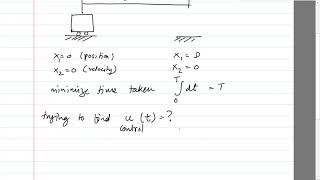 x₁ = 0 (position) x₁ = D
x₂ = 0 (velocity) x₂ = 0
minimize time taken ∫₀ᵀ dt = T
trying to find u(t) = ?
control